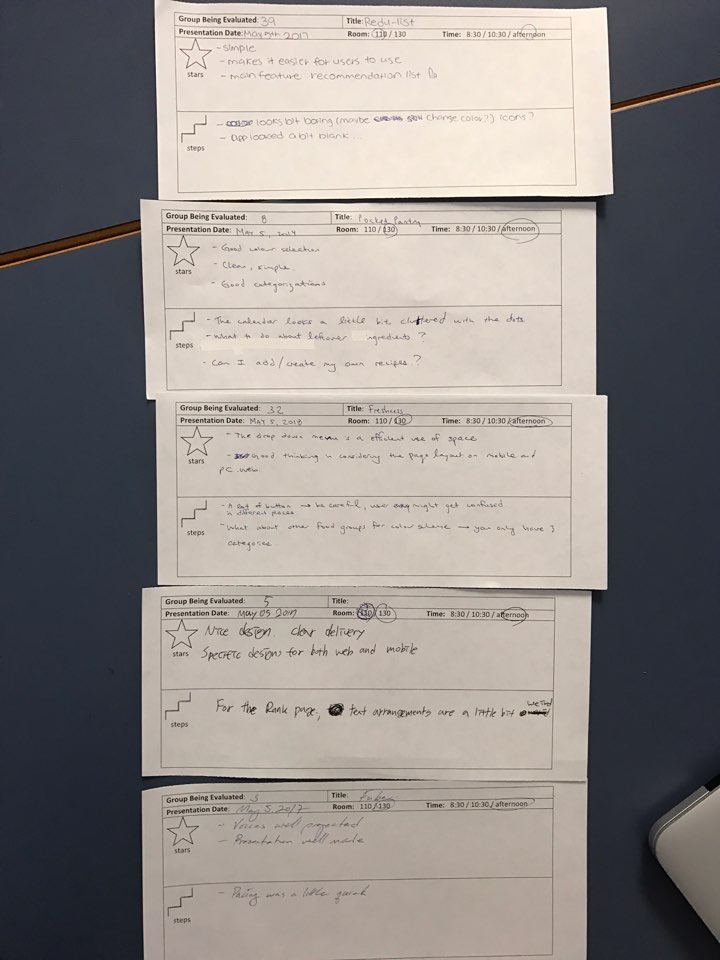 Group Being Evaluated: 39 Title: Redu-list
Presentation Date: May 5th 2017 Room: 110 / 130 Time: 8:30 / 10:30 / afternoon
- simple
- makes it easier for users to use
stars - main feature recommendation list
- looks bit boring (maybe change color?) icons?
- app looked a bit blank...
steps
Group Being Evaluated: 8 Title: Pocket Pantry
Presentation Date: May 5, 2017 Room: 110 / 130 Time: 8:30 / 10:30 / afternoon
- Good colour selection
- Clear, simple
stars - Good categorizations
- The calendar looks a little bit cluttered with the dots.
- What to do about leftover ingredients?
steps
- Can I add/create my own recipes?
Group Being Evaluated: 32 Title:
Presentation Date: May 5, 2018 Room: 110 / 130 Time: 8:30 / 10:30 / afternoon
- The drop down menu is a efficient use of space
- Good thinking in considering the page layout on mobile and
stars PC web.
- A lot of button → be careful, user might get confused
in different places
steps - What about other food groups for colour scheme → you only have 3
categories
Group Being Evaluated: 5 Title:
Presentation Date: May 05 2017 Room: 110 / 130 Time: 8:30 / 10:30 / afternoon
Nice design. Clear delivery
stars Specific designs for both web and mobile
For the Rank page, text arrangements are a little bit weird
steps
Group Being Evaluated: 3 Title:
Presentation Date: May 5, 2017 Room: 110 / 130 Time: 8:30 / 10:30 / afternoon
- Voices well projected
- Presentation well made
stars
- Pacing was a little quick
steps